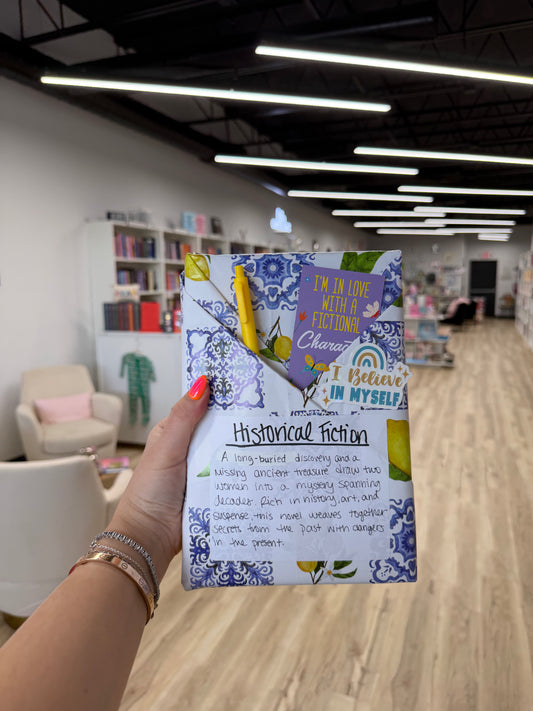 I'M IN LOVE
WITH A
FICTIONAL
Character
I Believe
IN MYSELF
Historical Fiction
A long-buried discovery and a
missing ancient treasure draw two
women into a mystery spanning
decades. Rich in history, art, and
suspense, this novel weaves together
secrets from the past with dangers
in the present.